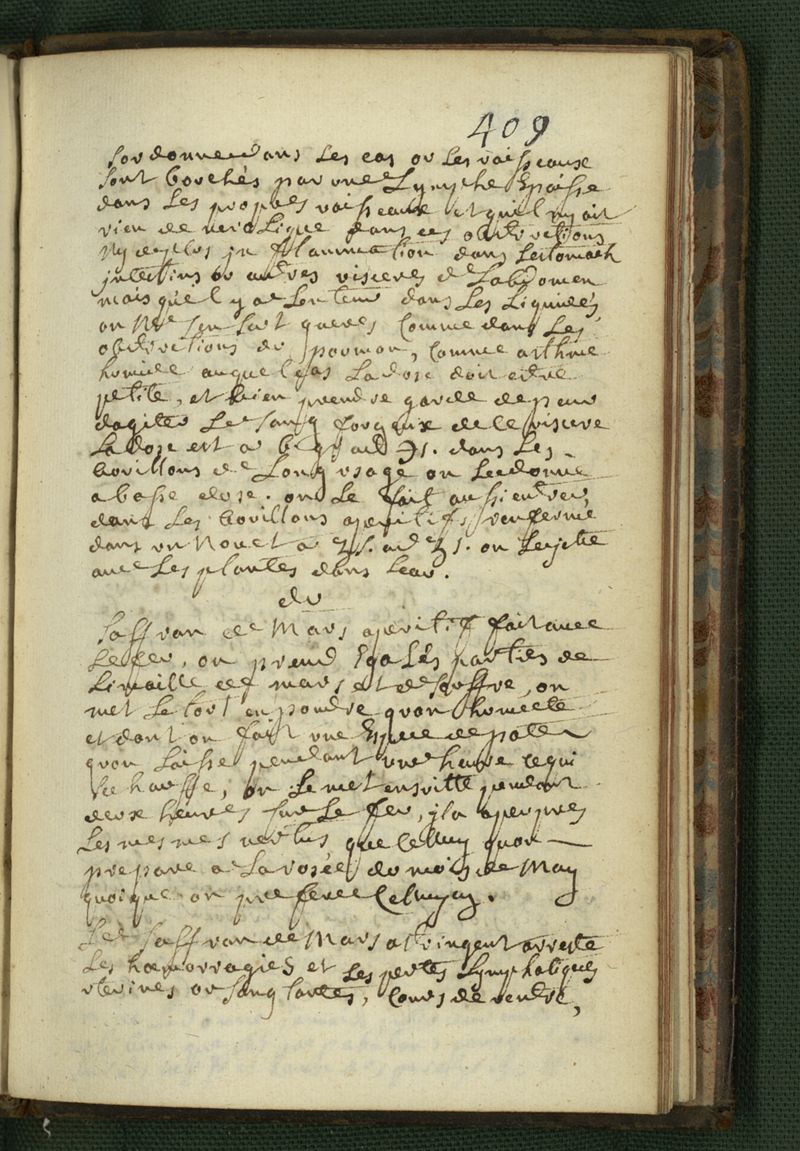 409
Sordonne dans Les cas ou Les vaisseaux
sont bouchés par une Lymphe Epaisse
dans Les propres vaisseaux et quil ny ait
rien de dans ces obstructions
Ny de plus inflammation dans Lestomach
intestins ou autres visceres de Labdomen
mais quil y a Lenteur dans Les Liquides
on Ne sen sert gueres Comme dans Les
obstructions du poumon, Comme asthme
humide auquel cas La dose doit estre
petite, et bien prendre garde de peur
dagiter Le sang de ce viscere
La dose est a 6 gr ad ℈ 1. dans Les
bouillons de Long usage on Le donne
a basse dose. on Le fait aussi entrer
dans Les bouillons aperitifs renfermé
dans un Nouet a ad ʒ 1. on Le jette
avec Les plantes dans Leau.
du
Saffran de Mars aperitif fait avec
Le feu, on prend Egales parties de
Limaille de mars et de souffre, on
met Le tout en poudre quon humecte
et dont on fait une Espece de pate
quon Laisse pendant une heure ce qui
, on Le met ensuitte pendant
deux heures sur Le feu, il a a peu pres
Les mesmes vertus que celuy quon
prepare a La rosée du mois de May
quoique on prefere Celuy cy.
Le Saffran de Mars astringent arreste
Les hœmorragies et Les pertes Lymphatiques
uterines ou sanglantes, Cours de ventre,